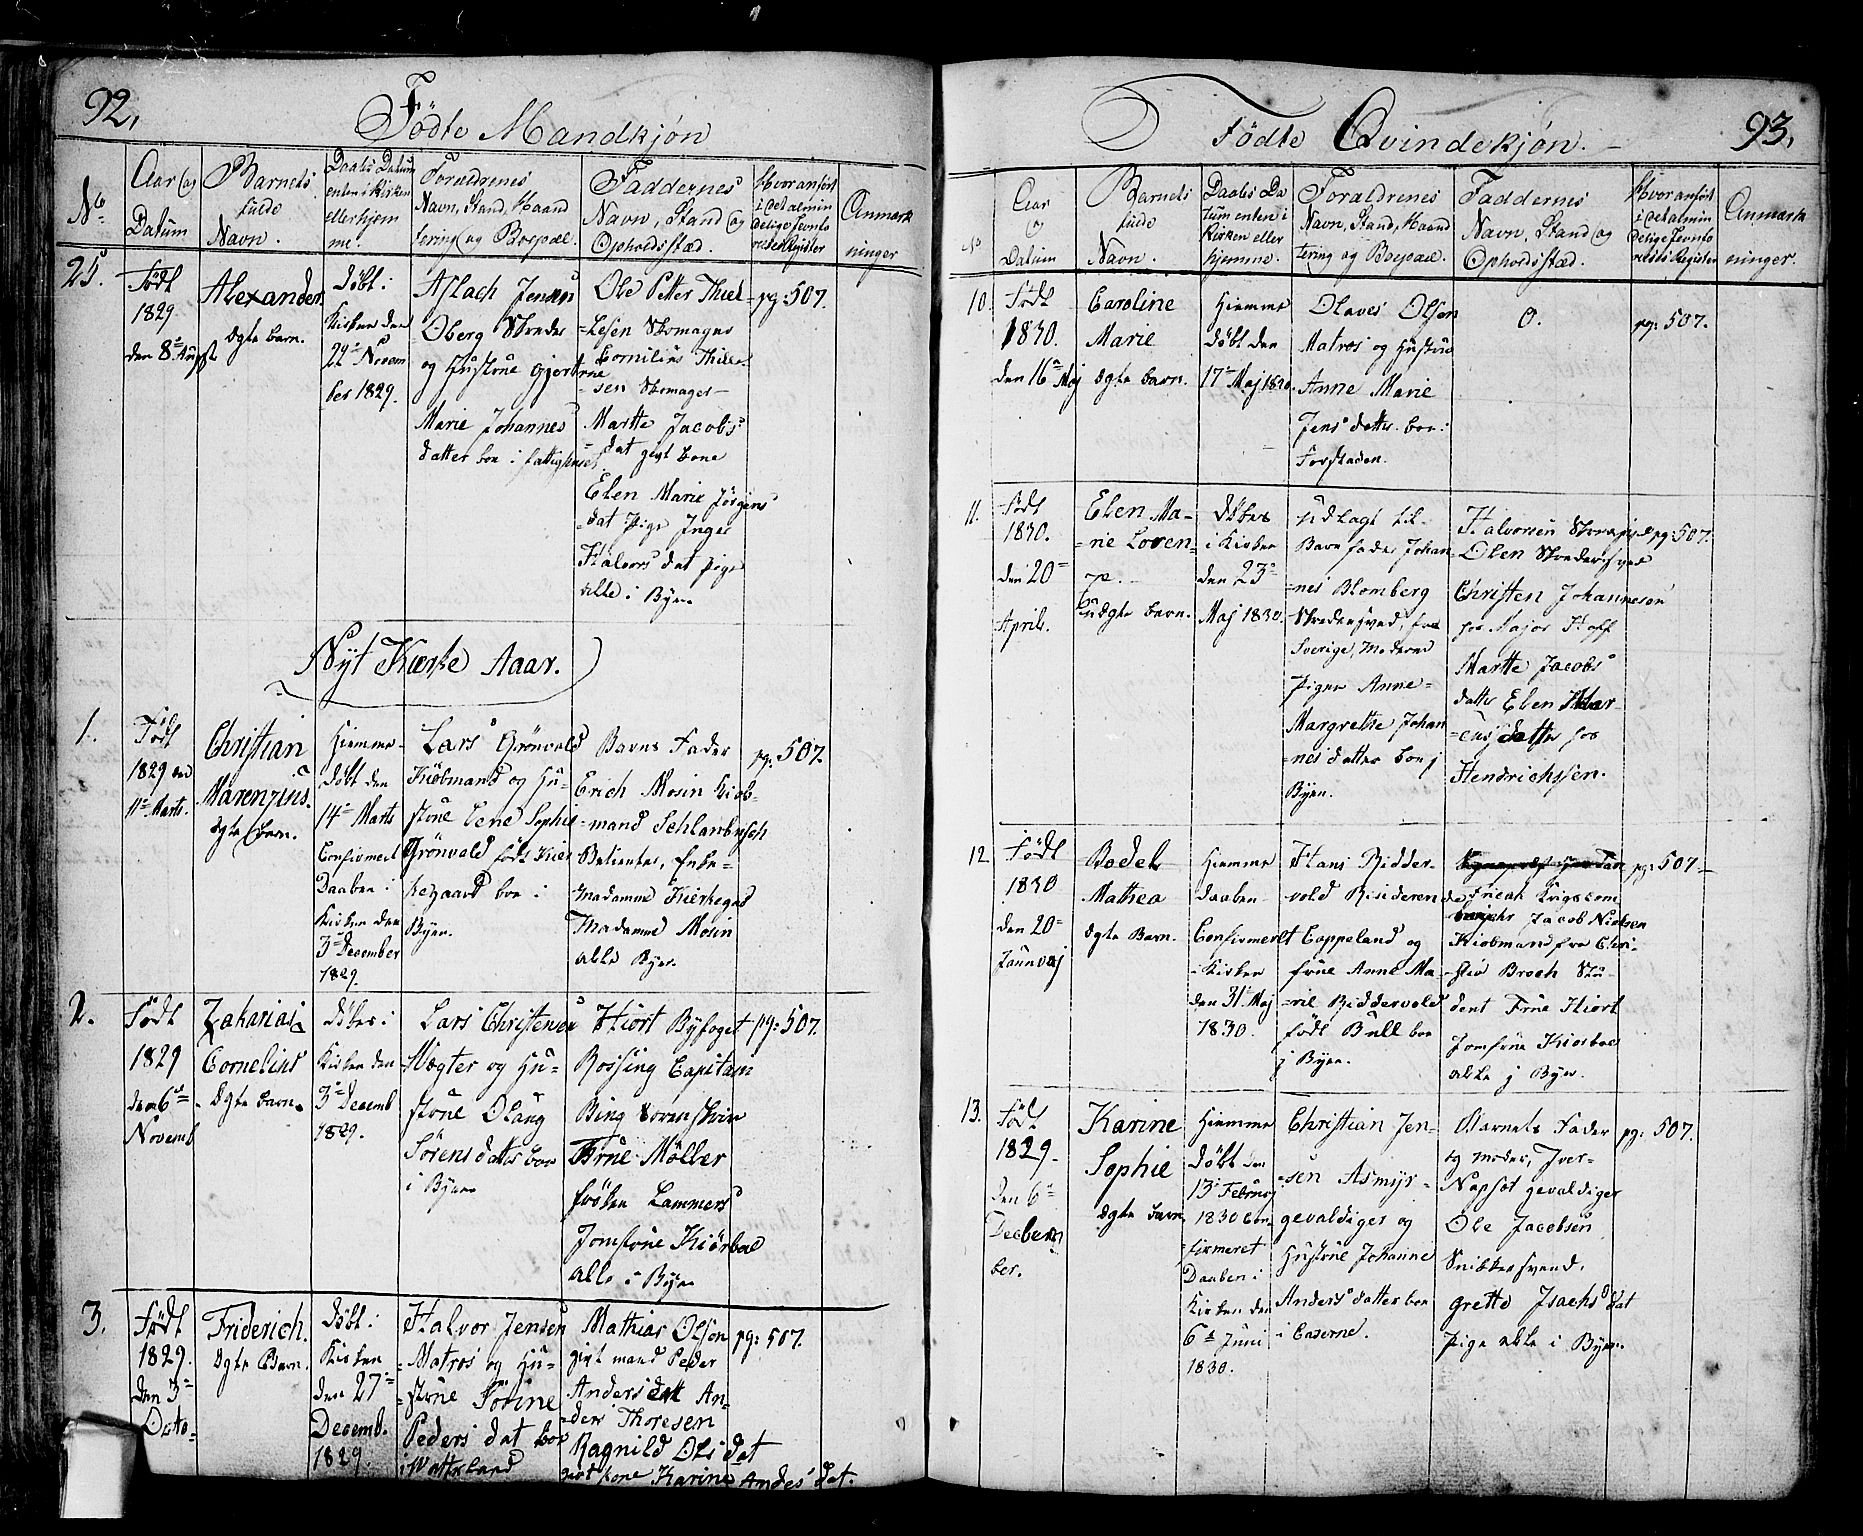 92,
Födte Mandkjøn
No.
Aar og
Datum
Barnets
fulde
Navn.
Daabs Datum
enten i Kirken
eller hjem
me.
Forældrenes
Navn, Stand, Haand
tering og Boepæl.
Faddernes
Navn, Stand og
Opholdsstæd.
Hvor anført
i det almin
delige Jevnfö
relses Register
Anmærk
ninger
25.
Födt
1829
den 8de Augst
Alexander
ægte barn.
Döbt i
Kirken den
22de Novem
ber 1829.
Aslach Jensen
Oberg Skreder
og Hustrue Gjert
rue
Marie Johannes
datter boe i fattighuset.
Ole Petter Thiel-
-lesen Skomager
Cornilius Thille-
sen Skomager-
Marthe Jacobs
dat givt kone
Elen Marie Jörgens
-dat Pige Inger
Halvors dat pige
alle i Byen
pg: 507.
Nyt Kirke Aaar.
1.
Födt
1829 den
11te Marts.
Christian
Marenzius.
ægte barn.
Hiemme-
döbt den
14de Marts
Confirmert
Daaben i
Kirken den
3de December
1829.
Lars Grönvold
Kiöbmand og Hu-
strue Lene Sophie
Grönvold födt Kier
kegaard boe i
Byen.
Barns Fader
Erich Mosin Kiöb-
-mand Schlanbusch
Betienter, Enke-
madamme Kierkegrd
Madamme Mosin
alle Byen.
pg: 507.
2.
Födt
1829
den 6te
Novemb
Zakarias
Cornelius
ægte barn.
döbt i
Kirken den
3de Decemb
1829.
Lars Christensen
Vægter og Hu-
strue Olaug
Sörens datter boe
i Byen
Hiort Byfoget
Rossing Capitain
Bing Sorenskriver
Frue Möller
fröken Lammers
Jomfrue Kiörboe
alle i Byen
pg: 507.
3.
Födt
1829.
den 3de
Octo-
Friderich.
ægte Barn.
Döbt i
Kirken
den 27de
Decemb.
1829.
Halvor Jensen
Matros og Hu-
strue Torine
Peders dat boe
i Watterland
Mathias Olsen
givt mand Peder
Anders datt An-
ders Thoresen
Ragnild Ols dat
givt kone Karine Anders dat.
pg: 507.
93,
Födte Qvindekjøn.
No
Aar
og
Datum
Barnets
fulde
Navn.
Daabs Da
tum enten i
Kirken eller
hjemme.
Forældrenes
Navn, Stand, Haand
tering og Boepæl.
Faddernes
Navn, Stand og
Opholdsstæd.
Hvor anført
i det almin
delige Jevnfö
relses Register
Anmærk
ninger.
10.
Födt
1830.
den 16de Maj
Caroline
Marie
ægte barn.
Hiemme
döbt den
17de Maj 1830.
Olaves Olsen
Matros og Hustrue
Anne Marie
Jens datter. boe i
Forstaden.
0.
pg: 507.
11.
Födt
1830.
den 20de
April.
Elen Ma-
-rie Loven-
-
uægte barn.
döbt
i Kirken
den 23de
Maj 1830.
udlagt til
Barnefader Johan
-nes Blomberg
Skredersvend, fra
Sverige, Moderen
Pigen Anne-
Margrethe Johan
-nes datter boe j
Byen.
Halvorsen
Olsen Skredersvend
Christen Johannesen
hos Major Hoff
Marthe Jacobs
datter Elen Mar-
-cus datter hos
Hendrichssen.
pg: 507.
12
Födt
1830
den 20de
Januarj
Bodel
Mathea
ægte Barn.
Hiemme
daaben
Confirmert
i Kirken
den 31te Maj
1830.
Hans Ridder-
vold Residerende
Cappeland og
frue Anne Ma-
-rie Riddervold
födt Bull boe
j Byen.
Krigscom
Jacob Nielsen
Kiöbmand fra Chri-
-stia Broch Stu-
dent Frue Hiort
Jomfrue Kiörboe
alle j Byen.
pg: 507.-
13.
Föd.
1829.
den 6te
Decbem
ber.
Karine
Sophie
ægte barn
Hiemme
döbt den
13de Februaj
1830 Con
-firmeret
Daaben i
Kirken den
6te Juni
1830.
Christian Jen-
-sen Asmyr-
gevaldiger og
Hustrue Johanne
Anders datter boe
i Caserne.
Barnets Fader
og moder, Iver-
Napsöt gevaldiger
Ole Jacobsen
Snikkersvend,
grette Isachs dat
Pige alle i Byen.
pg: 507.